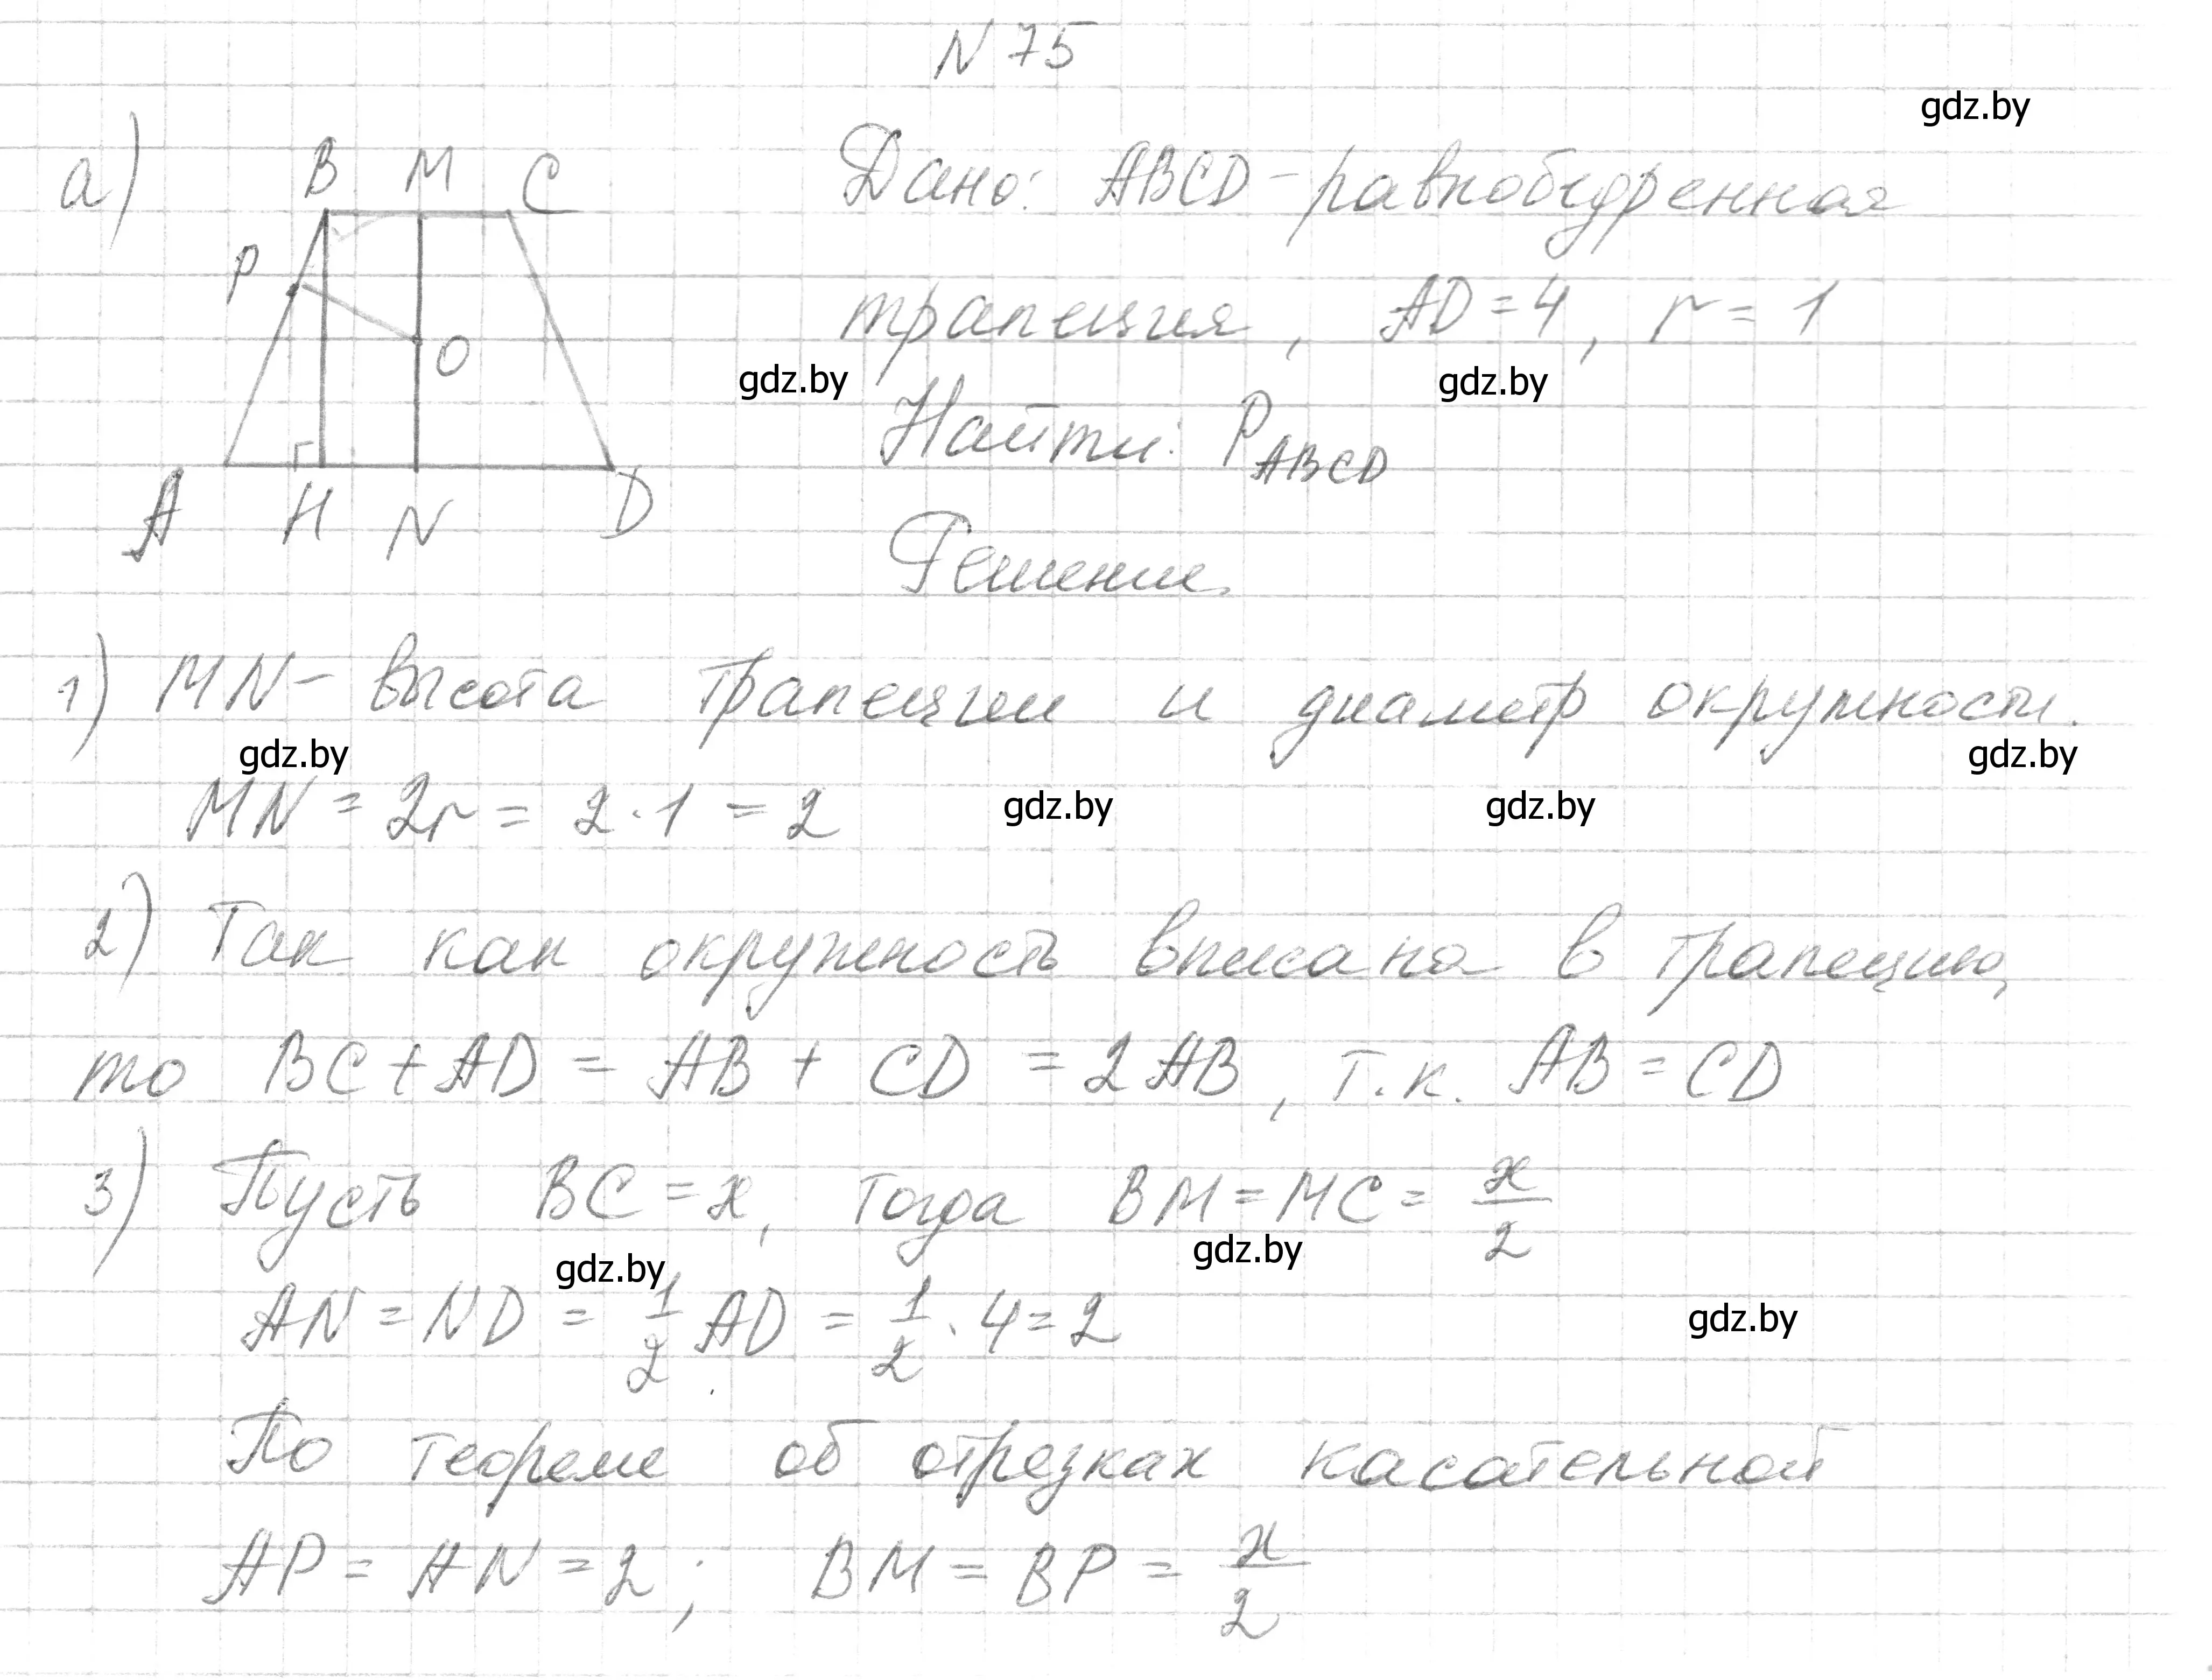 N 75
gdz.by
а) B M C
P
O
A H N D
Дано: ABCD - равнобедренная
трапеция, AD = 4, r = 1
gdz.by gdz.by
Найти: P_ABCD
Решение.
1) MN - высота трапеции и диаметр окружности.
gdz.by gdz.by
MN = 2r = 2 · 1 = 2
gdz.by gdz.by
2) Так как окружность вписана в трапецию,
то BC + AD = AB + CD = 2AB, т.к. AB = CD
3) Пусть BC = x, тогда BM = MC = x/2
gdz.by gdz.by
AN = ND = 1/2 AD = 1/2 · 4 = 2
gdz.by
По теореме об отрезках касательной
AP = AN = 2; BM = BP = x/2